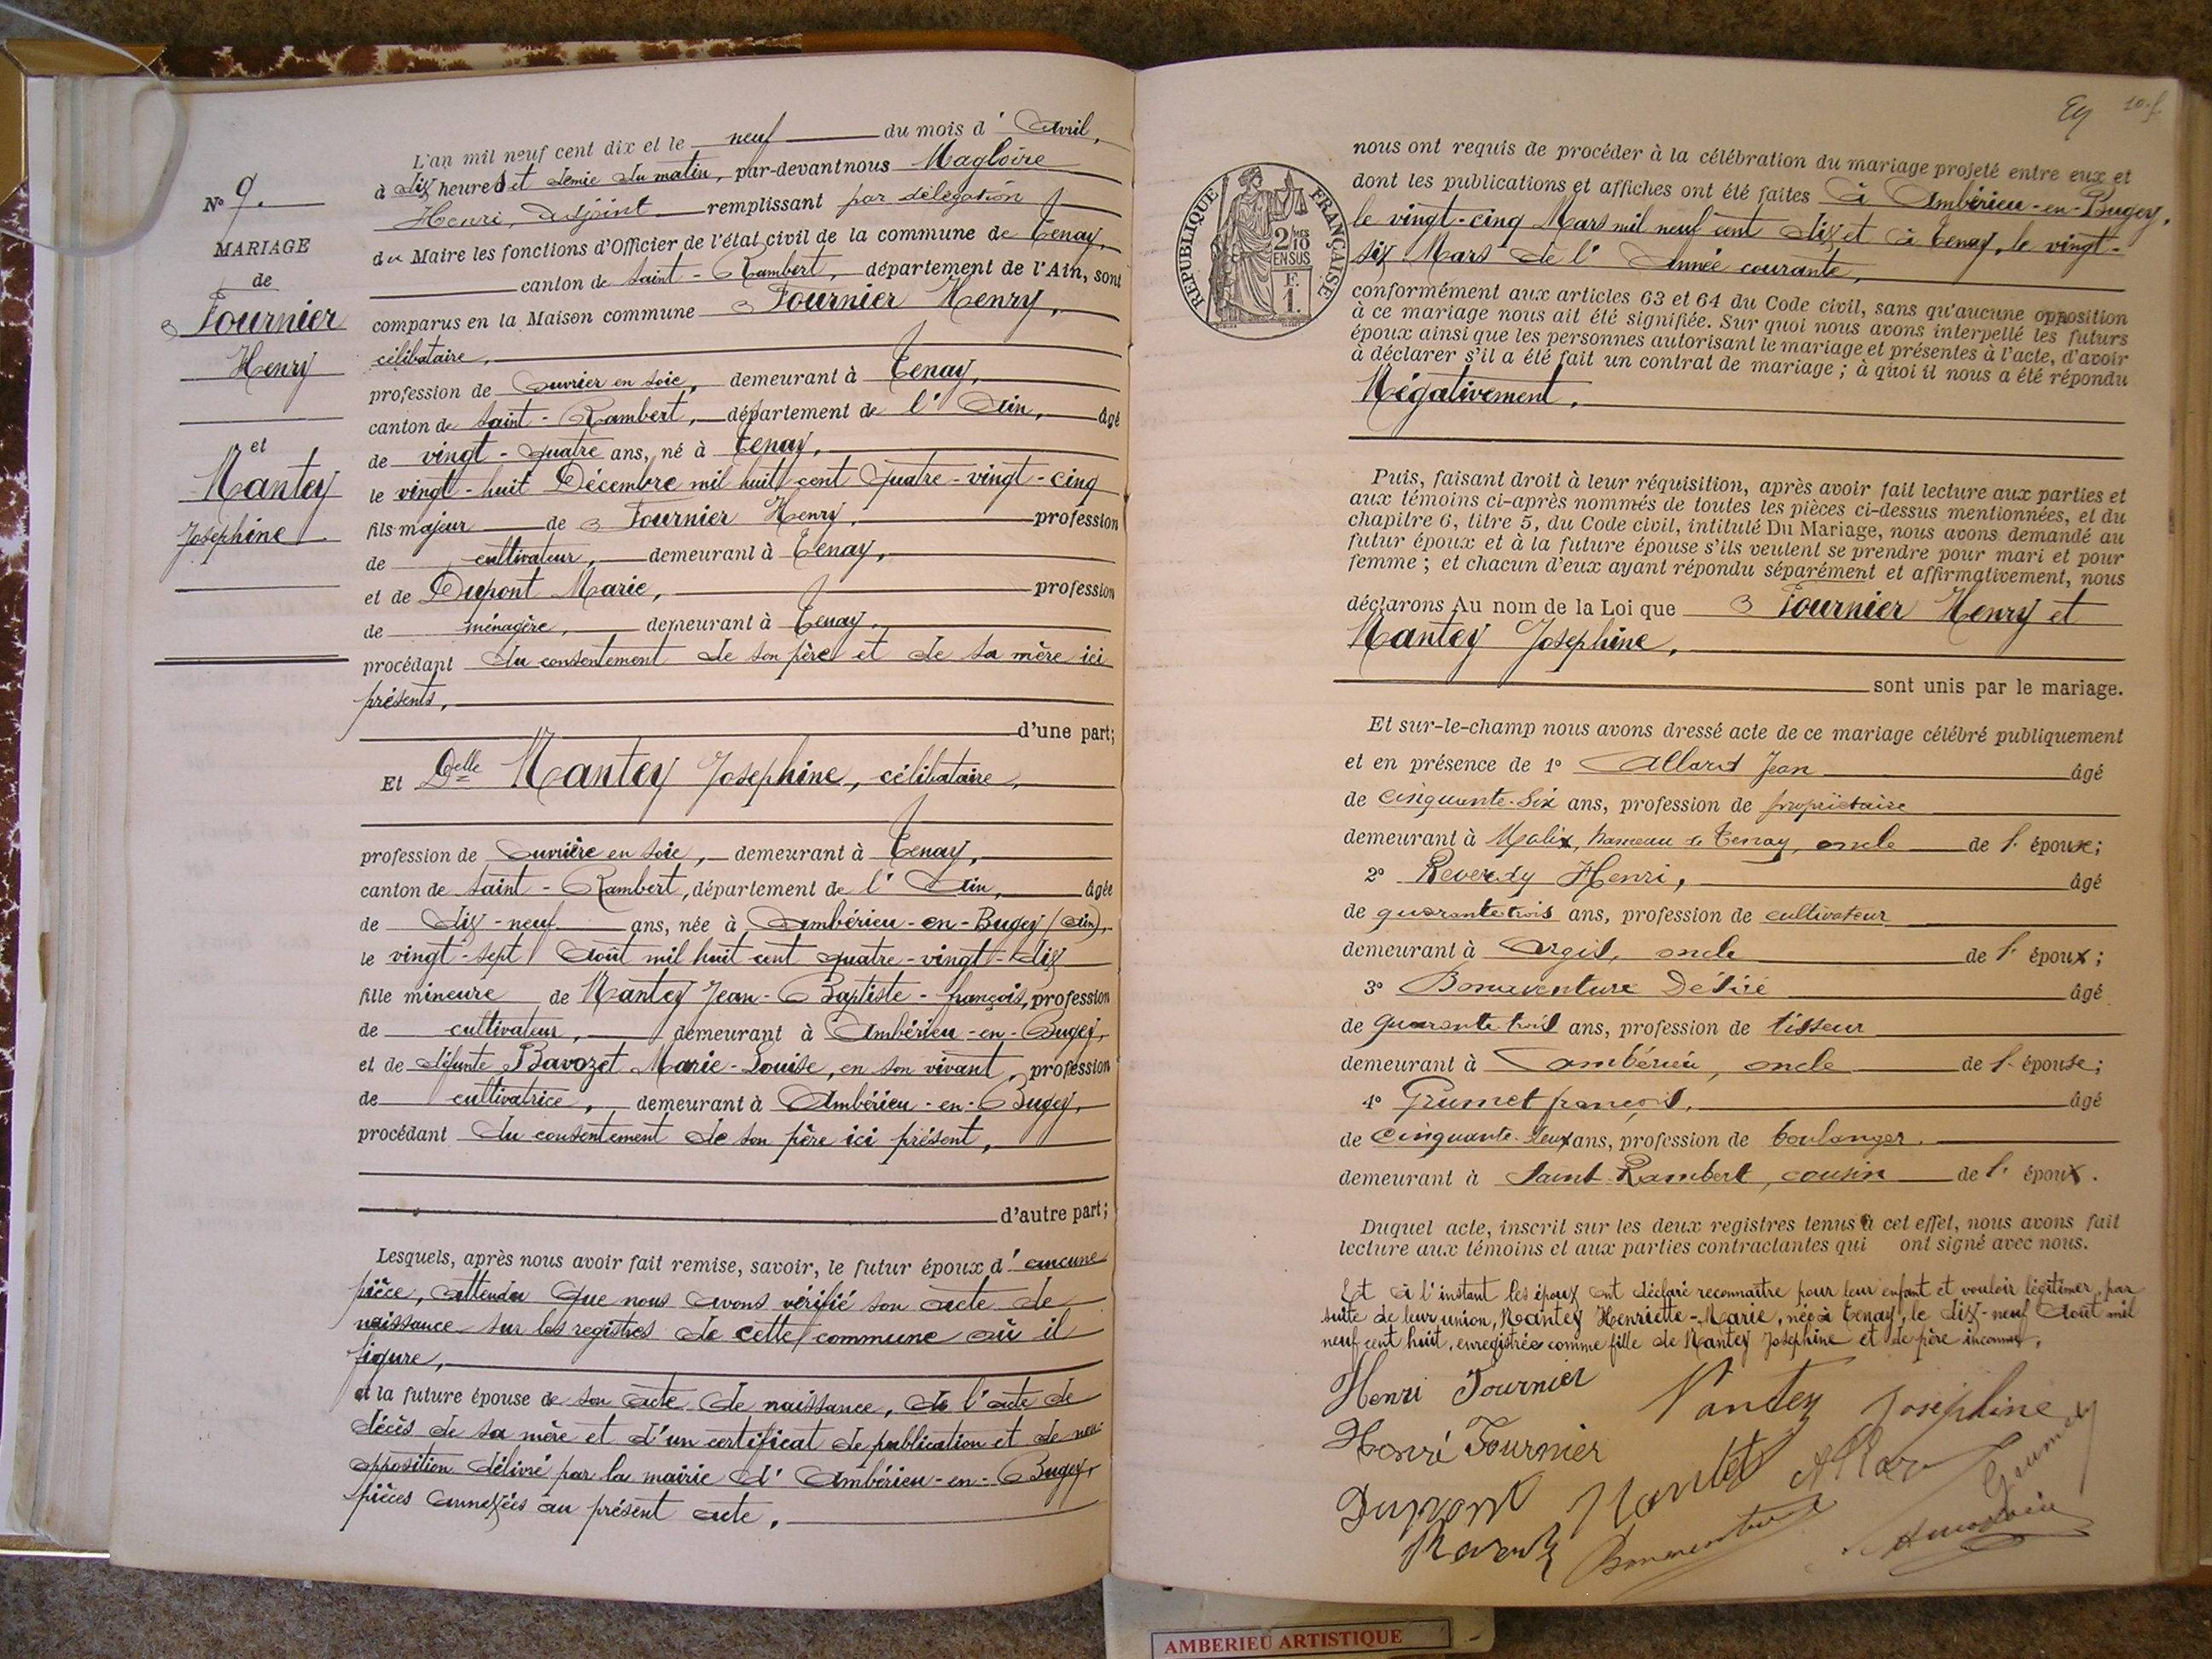 L'an mil neuf cent dix et le neuf du mois d'Avril,
à dix heures et demie du matin, par-devant nous Magloire
Henri, adjoint remplissant par délégation
du Maire les fonctions d'Officier de l'état civil de la commune de Tenay,
canton de Saint-Rambert, département de l'Ain, sont
comparus en la Maison commune Fournier Henry,
célibataire,
profession de Ouvrier en soie, demeurant à Tenay,
canton de Saint-Rambert, département de l'Ain, âgé
de vingt-quatre ans, né à Tenay,
le vingt-huit Décembre mil huit cent quatre-vingt-cinq
fils majeur de Fournier Henry, profession
de cultivateur, demeurant à Tenay,
et de Dupont Marie, profession
de ménagère, demeurant à Tenay,
procédant du consentement de son père et de sa mère ici
présents,
d'une part;
Et Delle Nantey Josephine, célibataire,
profession de Ouvrière en soie, demeurant à Tenay,
canton de Saint-Rambert, département de l'Ain, âgée
de dix-neuf ans, née à Ambérieu-en-Bugey (Ain),
le vingt-sept Août mil huit cent quatre-vingt-dix
fille mineure de Nantey Jean-Baptiste-françois, profession
de cultivateur, demeurant à Ambérieu-en-Bugey,
et de défunte Bavozet Marie-Louise, en son vivant, profession
de cultivatrice, demeurant à Ambérieu-en-Bugey,
procédant du consentement de son père ici présent,
d'autre part;
Lesquels, après nous avoir fait remise, savoir, le futur époux d'aucune
pièce, attendu que nous avons vérifié son acte de
naissance sur les registres de cette commune où il
figure,
et la future épouse de son acte de naissance, de l'acte de
décès de sa mère et d'un certificat de publication et de non
opposition délivré par la mairie d'Ambérieu-en-Bugey,
pièces annexées au présent acte,
N° 9.
MARIAGE
de
Fournier
Henry
et
Nantey
Josephine
10 f.
nous ont requis de procéder à la célébration du mariage projeté entre eux et
dont les publications et affiches ont été faites à Ambérieu-en-Bugey,
le vingt-cinq Mars mil neuf cent dix et à Tenay, le vingt-
six Mars de l'Année courante,
conformément aux articles 63 et 64 du Code civil, sans qu'aucune opposition
à ce mariage nous ait été signifiée. Sur quoi nous avons interpellé les futurs
époux ainsi que les personnes autorisant le mariage et présentes à l'acte, d'avoir
à déclarer s'il a été fait un contrat de mariage; à quoi il nous a été répondu
Négativement,
Puis, faisant droit à leur réquisition, après avoir fait lecture aux parties et
aux témoins ci-après nommés de toutes les pièces ci-dessus mentionnées, et du
chapitre 6, titre 5, du Code civil, intitulé Du Mariage, nous avons demandé au
futur époux et à la future épouse s'ils veulent se prendre pour mari et pour
femme; et chacun d'eux ayant répondu séparément et affirmativement, nous
déclarons Au nom de la Loi que Fournier Henry et
Nantey Josephine,
sont unis par le mariage.
Et sur-le-champ nous avons dressé acte de ce mariage célébré publiquement
et en présence de 1° Allard Jean âgé
de Cinquante-six ans, profession de propriétaire
demeurant à Malix, hameau de Tenay, oncle de l'épouse;
2° Reverdy Henri, âgé
de quarante trois ans, profession de cultivateur
demeurant à Argis, oncle de l'époux;
3° Bonaventure Désiré âgé
de quarante trois ans, profession de tisseur
demeurant à Ambérieu, oncle de l'épouse;
4° Grumet françois, âgé
de Cinquante-deux ans, profession de boulanger
demeurant à Saint-Rambert, cousin de l'époux.
Duquel acte, inscrit sur les deux registres tenus à cet effet, nous avons fait
lecture aux témoins et aux parties contractantes qui ont signé avec nous.
Et à l'instant les époux ont déclaré reconnaître pour leur enfant et vouloir légitimer, par
suite de leur union, Nantey Henriette-Marie, née à Tenay, le dix-neuf Août mil
neuf cent huit, enregistrée comme fille de Nantey Josephine et de père inconnu.
Henri Fournier Nantey Josephine
Henri Fournier Nantet Allard Grumet
Dupont
Bonaventure
RÉPUBLIQUE FRANÇAISE
2/10 EN SUS
F. 1.
AMBERIEU ARTISTIQUE